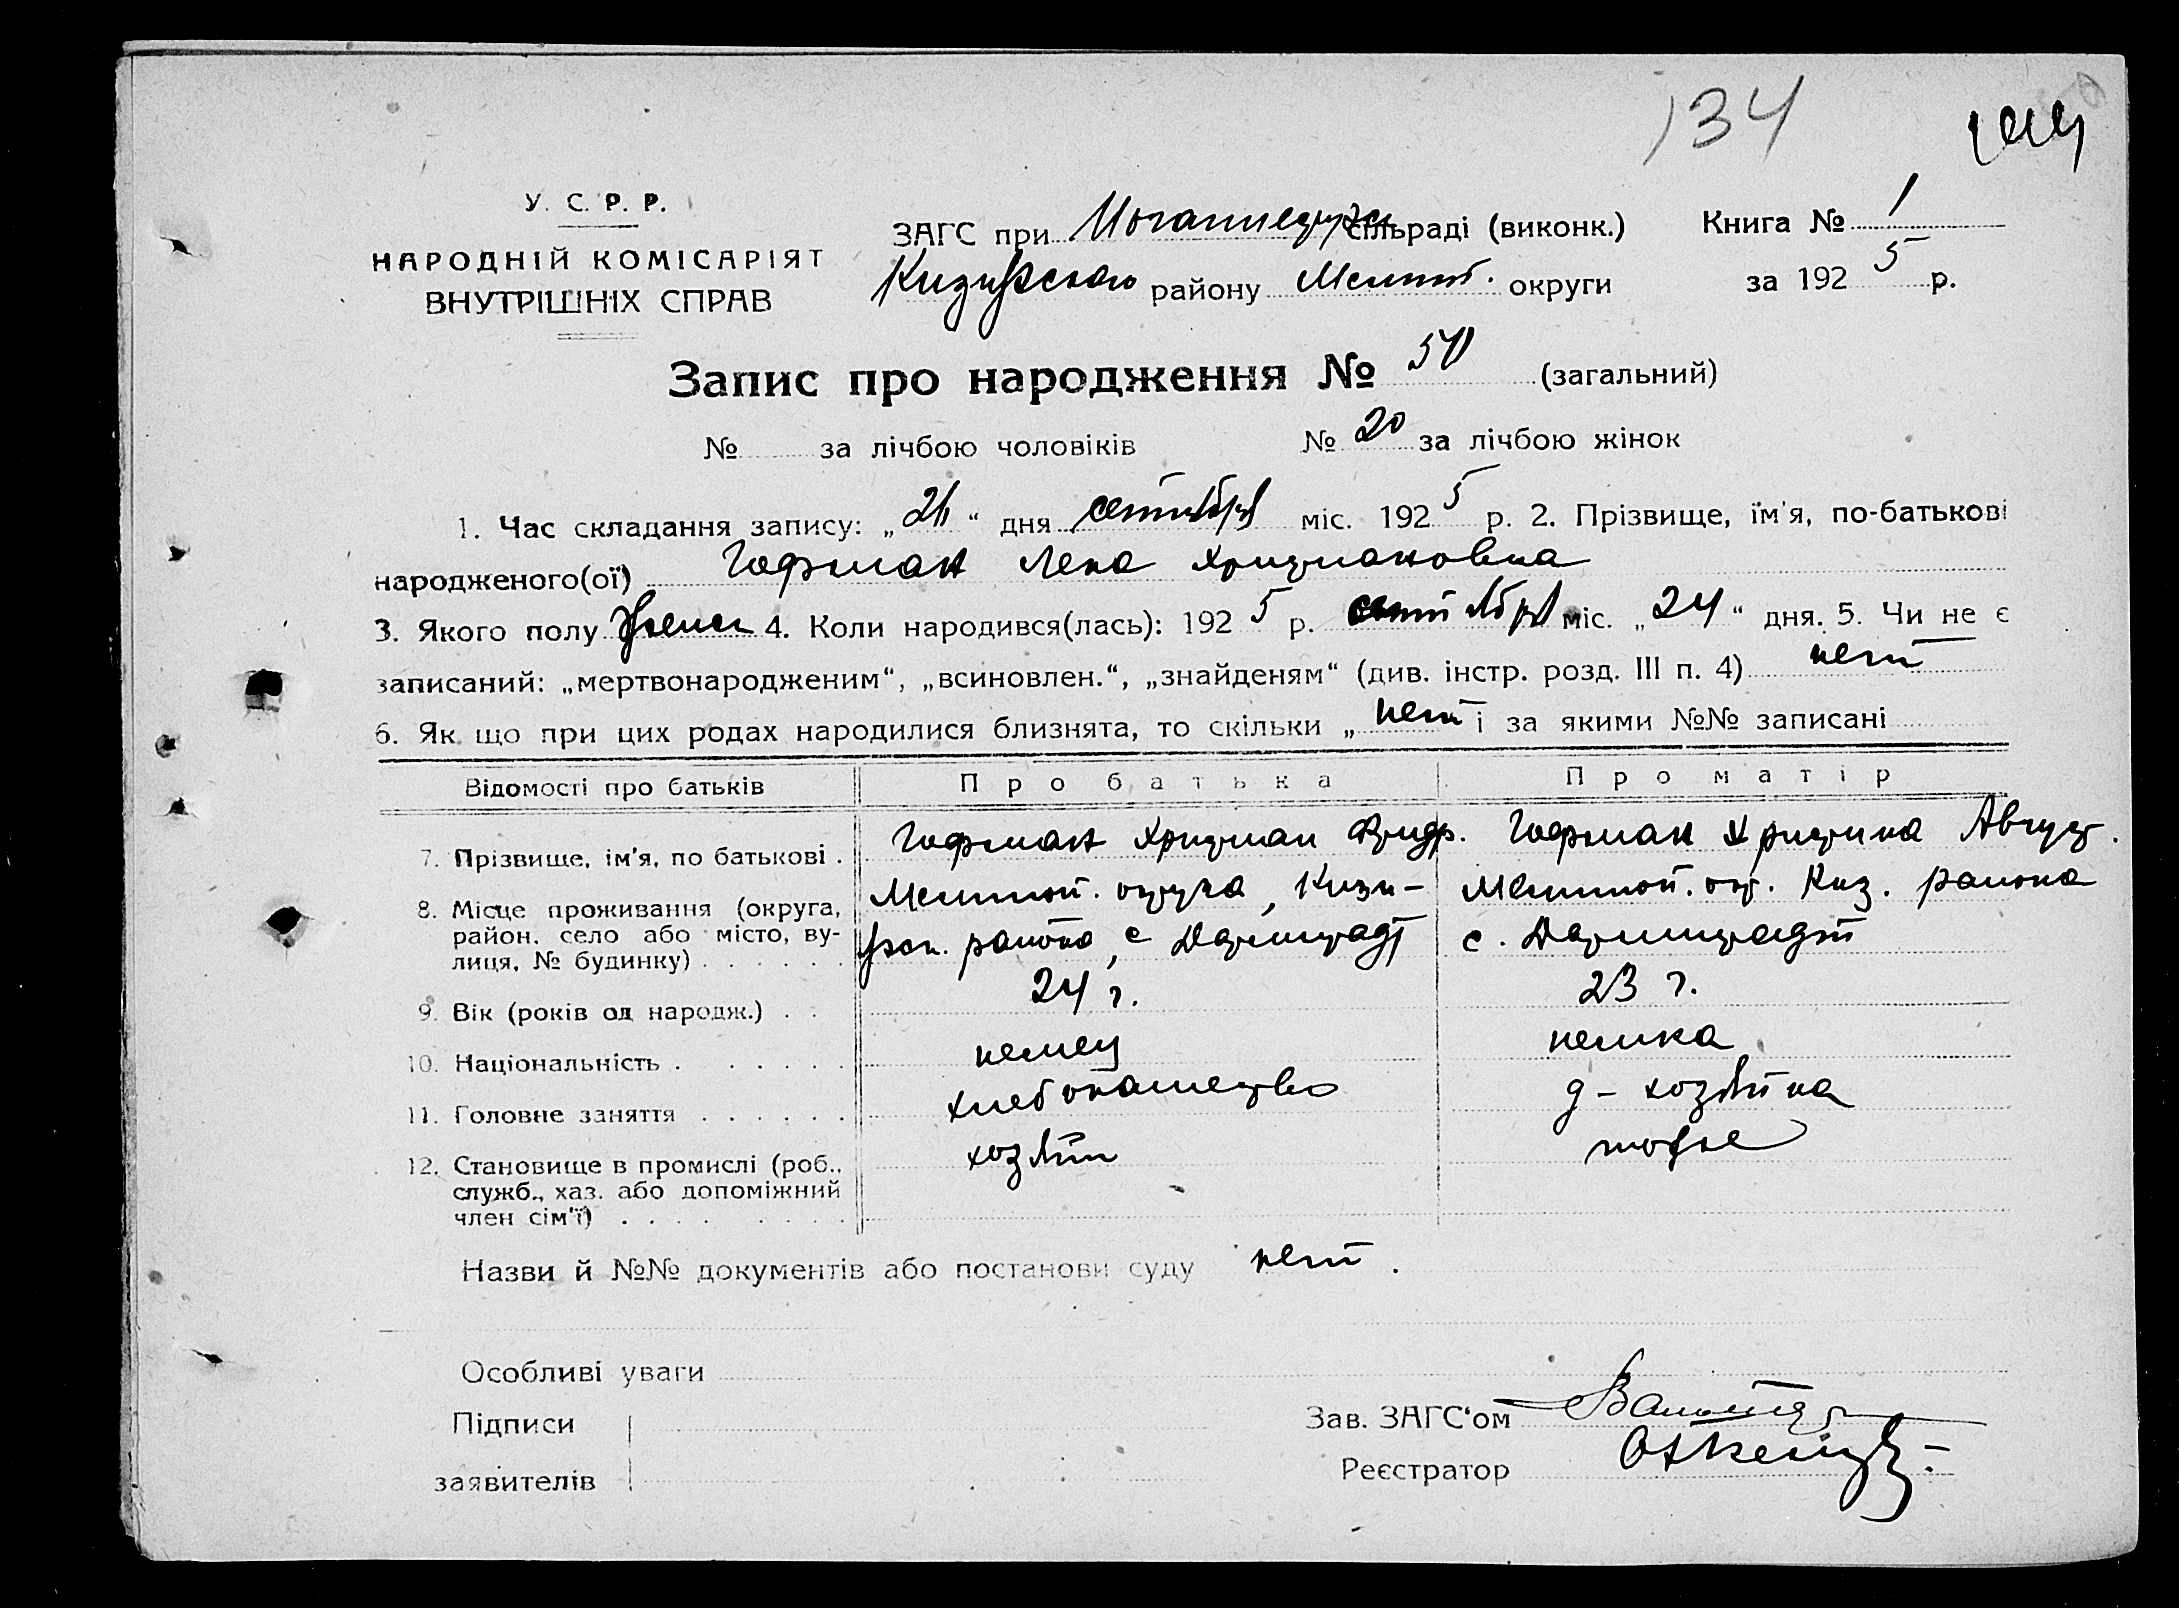 134
У. С. Р. Р.
НАРОДНІЙ КОМІСАРІЯТ
ВНУТРІШНІХ СПРАВ
ЗАГС при сільраді (виконк.) Книга № 1
району Мелит. округи за 1925 р.
Запис про народження № 50 (загальний)
№ за лічбою чоловіків № 20 за лічбою жінок
1. Час складання запису: „26“ дня сентября міс. 1925 р. 2. Прізвище, їм'я, по-батькові
народженого(ої) Гофман Лена Христиановна
3. Якого полу женск 4. Коли народився(лась): 1925 р. сентября міс. „24“ дня. 5. Чи не є
записаний: „мертвонародженим“, „всиновлен.“, „знайденям“ (див. інстр. розд. III п. 4) нет
6. Як що при цих родах народилися близнята, то скільки „ нет і за якими №№ записані
Відомості про батьків Про батька Про матір
7. Прізвище, ім'я, по батькові . Гофман Християн Фридр. Гофман Христина Август.
8. Місце проживання (округа, район. село або місто, вулиця, № будинку) . . . . . . Мелитоп. округа, Кизи-
ярск. района, с Дармштадт
Мелитоп. окр. Киз. района
с. Дармштадт
9. Вік (років од народж.) . . 24 г. 23 г.
10. Національність . . . . . . немец немка
11. Головне заняття . . . . . . хлебопашество д-хозяйка
12. Становище в промислі (роб., служб., хаз. або допоміжний член сім'ї) . . . . . . . . хозяин тоже
Назви й №№ документів або постанови суду нет .
Особливі уваги
Підписи
заявителів
Зав. ЗАГС‘ом
Реєстратор